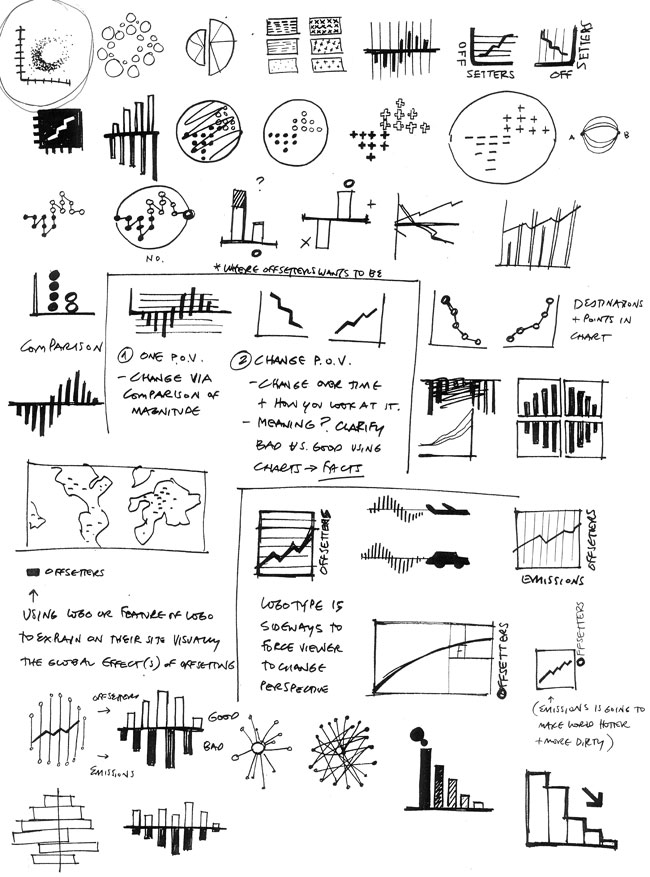 OFF
SETTERS
OFF
SETTERS
A
B
?
+
X
NO.
* WHERE OFFSETTERS WANTS TO BE
COMPARISON
1 ONE P.O.V.
- CHANGE VIA
COMPARISON OF
MAGNITUDE
2 CHANGE P.O.V.
- CHANGE OVER TIME
+ HOW YOU LOOK AT IT.
- MEANING? CLARIFY
BAD VS. GOOD USING
CHARTS → FACTS
DESTINATIONS
+ POINTS IN
CHART
OFFSETTERS
↑
USING LOGO OR FEATURE OF LOGO
TO EXPLAIN ON THEIR SITE VISUALLY
THE GLOBAL EFFECT(S) OF OFFSETTING
OFFSETTERS
LOGOTYPE IS
SIDEWAYS TO
FORCE VIEWER
TO CHANGE
PERSPECTIVE
OFFSETTERS
EMISSIONS
OFFSETTERS
OFFSETTERS
↑
(EMISSIONS IS GOING TO
MAKE WORLD HOTTER
+ MORE DIRTY)
OFFSETTERS
→
GOOD
BAD
→
EMISSIONS